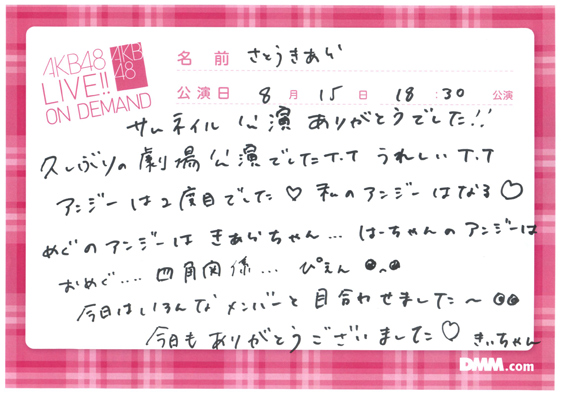 AKB48
LIVE!!
ON DEMAND
AKB
48
名前 さとうきあら
公演日 8月15日 18:30公演
サムネイル公演ありがとうでした!!
久しぶりの劇場公演でしたT.T うれしいT.T
アンジーは2度目でした♡ 私のアンジーはなる♡
めぐのアンジーはきあらちゃん... はーちゃんのアンジーは
おめぐ.... 四角関係... ぴえん
今日はいろんなメンバーと目合わせました〜
今日もありがとうございました♡ きぃちゃん
DMM.com